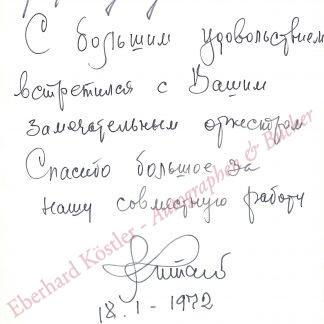 С большим удовольствием
встретился с Вашим
замечательным оркестром
Спасибо большое за
нашу совместную работу
18.1-1972
Eberhard Köstler - Autographen & Bücher